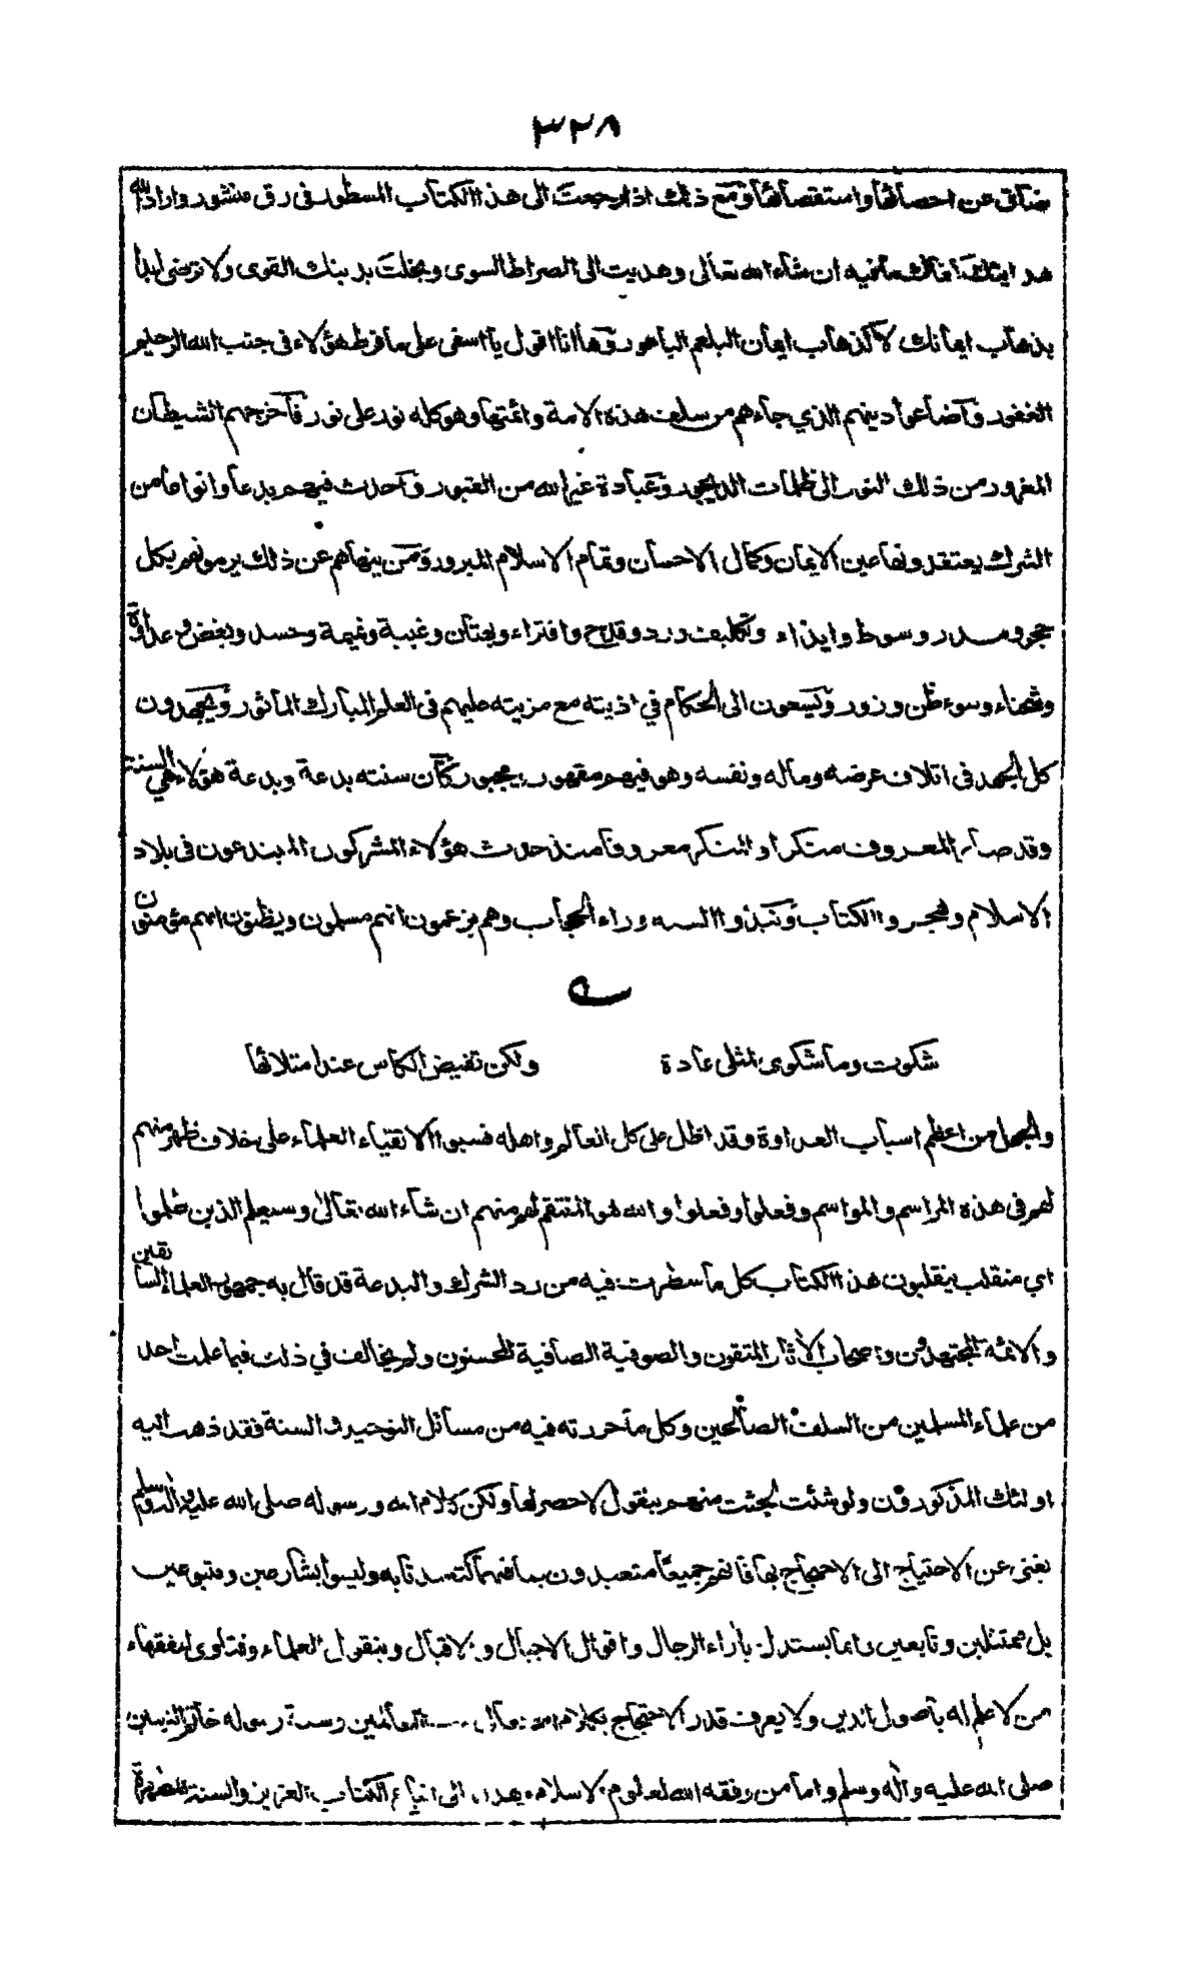 ٣٢٨
ضاق عن احصائها واستقصائها ومع ذلك اذا رجعت الى هذا الكتاب المسطور فى رق منشور واراد الله
هدايتك كفاك ما فيه ان شاء الله تعالى وهديت الى الصراط السوى وبخلت بدينك القوى ولا ترضى ابدا
بذهاب ايمانك لا كذهاب ايمان البلعم الباهور وها انا اقول يا اسفى على ما فرط هؤلاء فى جنب الله الرحيم
الغفور واضاعوا دينهم الذي جاءهم من سلف هذه الامة وائمتها وهو كله نور على نور فاخرجهم الشيطان
المغرور من ذلك النور الى ظلمات الديجور وعبادة غير الله من القبور واحدث فيهم بدعا وانواعا من
الشرك يعتقدونها عين الايمان وكمال الاحسان وتمام الاسلام المبرور ومن ينهاهم عن ذلك يرمونهم بكل
حجر ومدر وسوط وايذاء وتكليف ورد وقدح وافتراء وبهتان وغيبة ونميمة وحسد وبغض وعداوة
وشحناء وسوء ظن وزور ويسعون الى الحكام في اذيته مع مزيته عليهم فى العلم المبارك الماثور ويجهدون
كل الجهد فى اتلاف عرضه وماله ونفسه وهو فيهم مقهور مجبور كأن سنته بدعة وبدعة هؤلاء هي السنة
وقد صار المعروف منكرا والمنكر معروفا منذ حدث هؤلاء المشركون المبتدعون فى بلاد
الاسلام وهجروا الكتاب ونبذوا السنة وراء الحجاب وهم يزعمون انهم مسلمون ويظنون انهم مؤمنون
شكوت وما شكوى لمثلى عادة ولكن تفيض الكاس عند امتلائها
والجهل من اعظم اسباب العداوة وقد اظل على كل العالم واهله فسبوا الاتقياء العلماء على خلاف ظهر منهم
لهم فى هذه المراسم والمواسم وفعلوا وفعلوا والله هو المنتقم لهم منهم ان شاء الله تعالى وسيعلم الذين ظلموا
اي منقلب ينقلبون هذا الكتاب كل ما سطرت فيه من رد الشرك والبدعة قد قال به جمهور العلماء السابقين
والائمة المجتهدون واصحاب الأثار المتقون والصوفية الصافية المحسنون ولم يخالف في ذلك فيما علمت احد
من علماء المسلمين من السلف الصالحين وكل ما حررته فيه من مسائل التوحيد والسنة فقد ذهب اليه
اولئك المذكورون ولو شئت لجئت منهم بنقول لا حصر لها ولكن كلام الله ورسوله صلى الله عليه واله وسلم
يغنى عن الاحتياج الى الاحتجاج بها فانهم جميعا متعبدون بما فيهما كتعبدنا به وليسوا بشارعين ومتبوعين
بل ممتثلين وتابعين وانما يستدل بآراء الرجال واقوال الاجيال والاقبال وبنقول العلماء وفتاوى الفقهاء
من لا علم له باصول الدين ولا يعرف قدر الاحتجاج بكلام العالمين وسنة رسوله خاتم النبيين
صلى الله عليه واله وسلم واما من وفقه الله لعلوم الاسلام وهداه الى اتباع الكتاب العزيز والسنة المطهرة